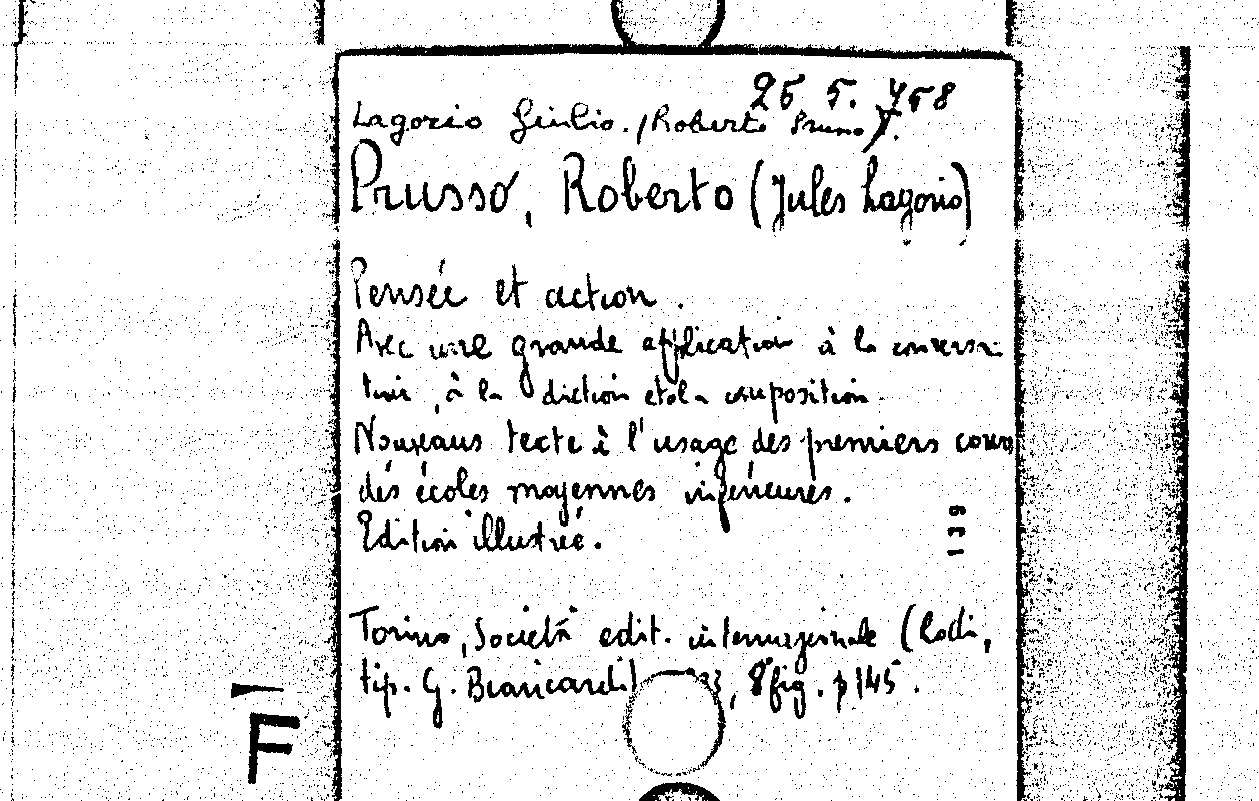 25. 5. 758
Lagorio Giulio. (Roberto Prusso).
Prusso, Roberto (Jules Lagorio)
Pensée et action.
Avec une grande application à la conversa
tion, à la diction et à la composition.
Nouveaus texte à l'usage des premiers cours
des écoles moyennes inférieures.
Edition illustrée.
139
Torino, Società edit. internazionale (Lodi,
tip. G. Biancardi) 33, 8° fig. p 145.
F